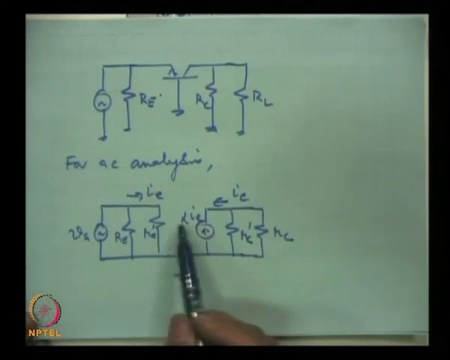 RE
RC
RL
For ac analysis,
ie
ic
vs
RE
re'
αie
rc'
RL
NPTEL